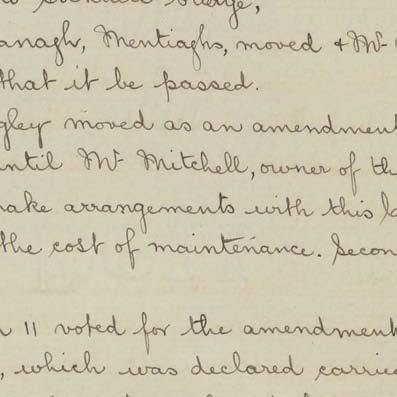 anagh, Mentiaghs, moved & Mr
that it be passed.
gley moved as an amendment
until Mr Mitchell, owner of th
make arrangements with this
the cost of maintenance. Secon
11 voted for the amendment
, which was declared carrie